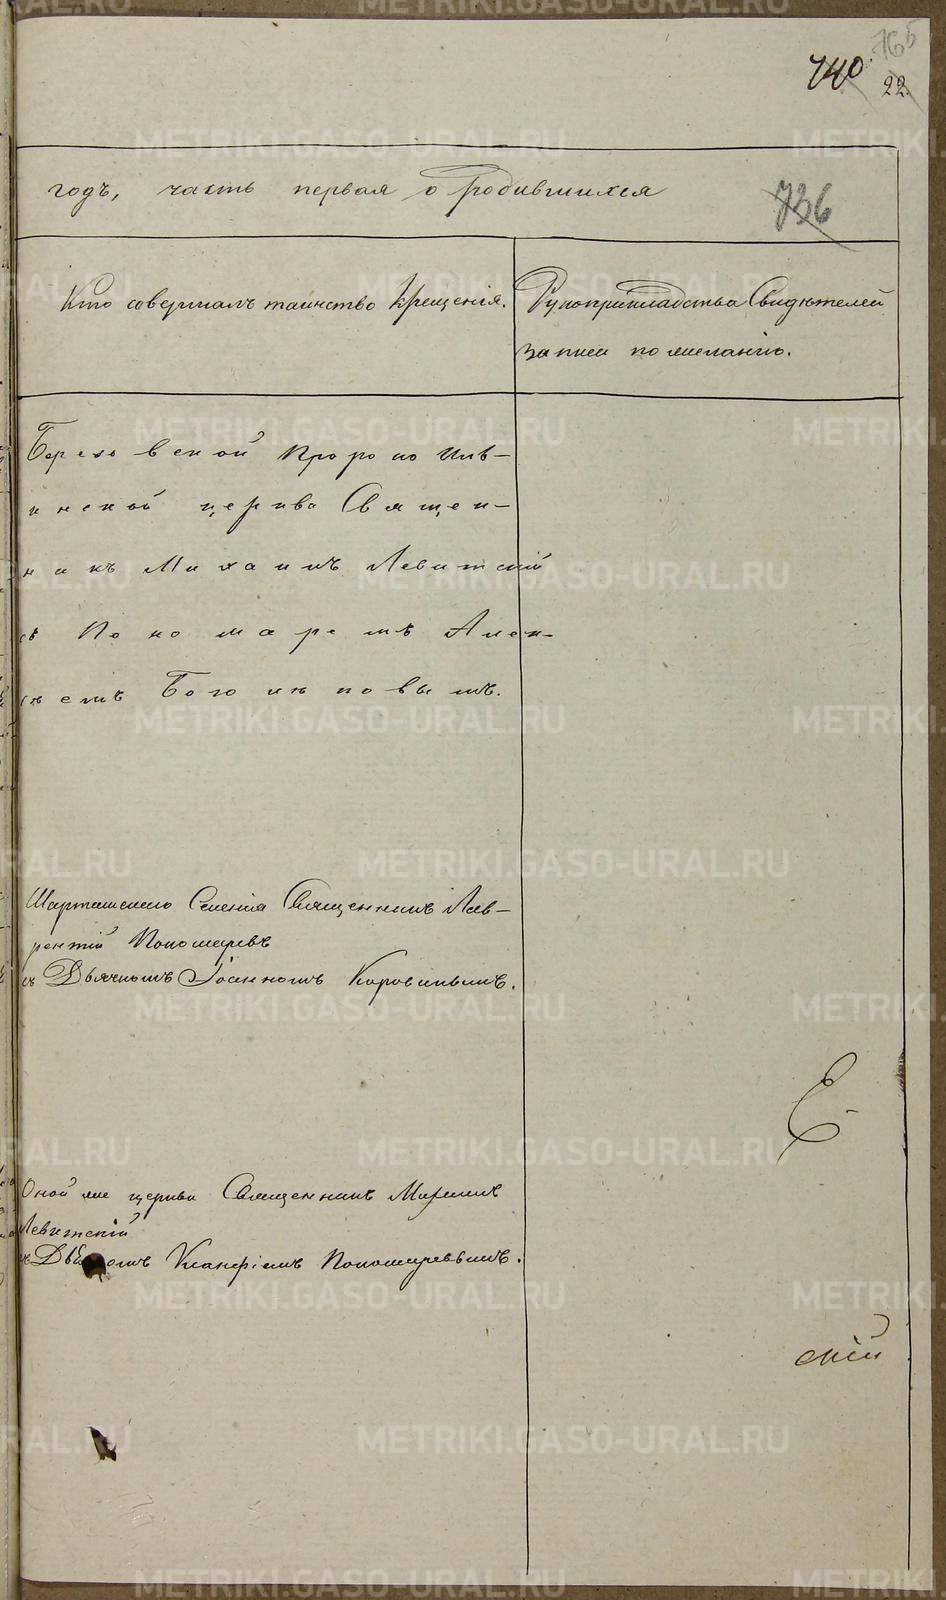 765
740
22.
годъ, часть первая о родившихся
736
Кто совершалъ таинство крещенія.
Рукоприкладства Свидѣтелей
записи по желанію.
Березовской Пророко Иль-
инской церкви Священ-
никъ Михаилъ Левитскій
съ Пономаремъ Алек-
сѣемъ
Шарташскаго Селенія Священникъ Лав-
рентій Пономаревъ
съ Дьячкомъ Іоанномъ Коровинымъ.
Оной же церкви Священникъ Михаилъ
Левитскій
съ Ксанфіемъ Пономаревымъ.
скій
METRIKI.GASO-URAL.RU